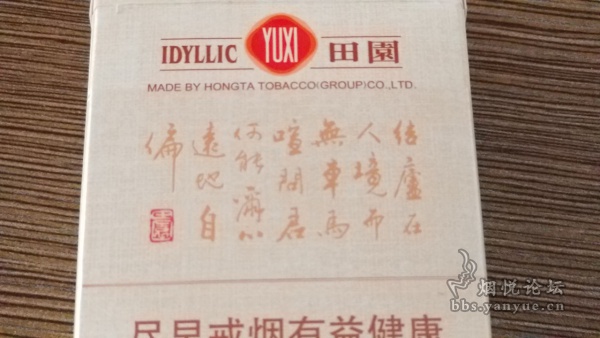 IDYLLIC YUXI 田園
MADE BY HONGTA TOBACCO(GROUP)CO.,LTD.
結廬在
人境而
無車馬
喧問君
何能爾心
遠地自
偏
尽早戒烟有益健康
烟悦论坛
bbs.yanyue.cn